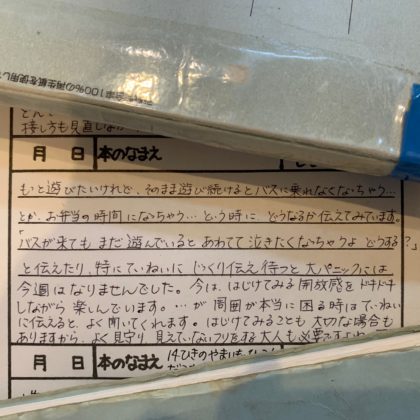 古紙100%の再生紙を使用し
接し方も見直しなが
月 日 本のなまえ
もっと遊びたいけれど、そのまま遊び続けるとバスに乗れなくなっちゃう…
とか、お弁当の時間になっちゃう…という時に、どうなるか伝えてみています。
「バスが来てもまだ遊んでいるとあわてて泣きたくなっちゃうよ どうする?」
と伝えたり、特にていねいに じっくり伝え待つと大パニックには
今週はなりませんでした。今は、はじけてみる開放感をドキドキ
しながら楽しんでいます。…が周囲が本当に困る時はていねい
に伝えると、よく聞いてくれます。はじけてみることも大切な場合も
ありますから、よく見守り 見えていないフリをする大人も必要ですよね
月 日 本のなまえ 14ひきのやまいも